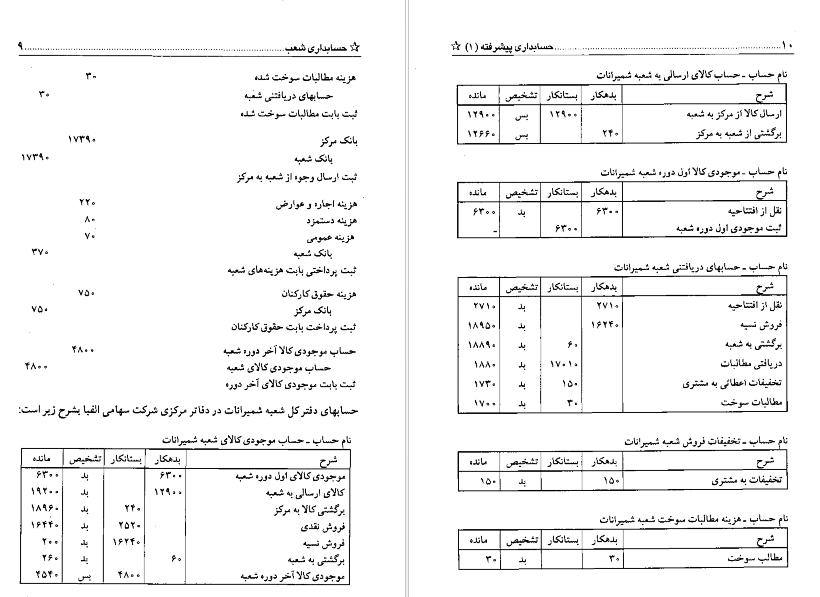 ☆ حسابداری شعب ........................................ ۹
هزینه مطالبات سوخت شده ۳۰
حسابهای دریافتنی شعبه ۳۰
ثبت بابت مطالبات سوخت شده
بانک مرکز ۱۷۳۹۰
بانک شعبه ۱۷۳۹۰
ثبت ارسال وجوه از شعبه به مرکز
هزینه اجاره و عوارض ۲۲۰
هزینه دستمزد ۸۰
هزینه عمومی ۷۰
بانک شعبه ۳۷۰
ثبت پرداختی بابت هزینه‌های شعبه
هزینه حقوق کارکنان ۷۵۰
بانک مرکز ۷۵۰
ثبت پرداخت بابت حقوق کارکنان
حساب موجودی کالا آخر دوره شعبه ۴۸۰۰
حساب موجودی کالای شعبه ۴۸۰۰
ثبت بابت موجودی کالای آخر دوره
حسابهای دفتر کل شعبه شمیرانات در دفاتر مرکزی شرکت سهامی الفبا بشرح زیر است:
نام حساب ـ حساب موجودی کالای شعبه شمیرانات
شرح بدهکار بستانکار تشخیص مانده
موجودی کالای اول دوره شعبه ۶۳۰۰ بد ۶۳۰۰
کالای ارسالی به شعبه ۱۲۹۰۰ بد ۱۹۲۰۰
برگشتی کالا به مرکز ۲۴۰ بد ۱۸۹۶۰
فروش نقدی ۲۵۲۰ بد ۱۶۴۴۰
فروش نسیه ۱۶۲۴۰ بد ۲۰۰
برگشتی به شعبه ۶۰ بد ۲۶۰
موجودی کالا آخر دوره شعبه ۴۸۰۰ بس ۴۵۴۰
۱۰ ........................................ حسابداری پیشرفته (۱) ☆
نام حساب ـ حساب کالای ارسالی به شعبه شمیرانات
شرح بدهکار بستانکار تشخیص مانده
ارسال کالا از مرکز به شعبه ۱۲۹۰۰ بس ۱۲۹۰۰
برگشتی از شعبه به مرکز ۲۴۰ بس ۱۲۶۶۰
نام حساب ـ موجودی کالا اول دوره شعبه شمیرانات
شرح بدهکار بستانکار تشخیص مانده
نقل از افتتاحیه ۶۳۰۰ بد ۶۳۰۰
ثبت موجودی اول دوره شعبه ۶۳۰۰ -
نام حساب ـ حسابهای دریافتنی شعبه شمیرانات
شرح بدهکار بستانکار تشخیص مانده
نقل از افتتاحیه ۲۷۱۰ بد ۲۷۱۰
فروش نسیه ۱۶۲۴۰ بد ۱۸۹۵۰
برگشتی به شعبه ۶۰ بد ۱۸۸۹۰
دریافتی مطالبات ۱۷۰۱۰ بد ۱۸۸۰
تخفیفات اعطائی به مشتری ۱۵۰ بد ۱۷۳۰
مطالبات سوخت ۳۰ بد ۱۷۰۰
نام حساب ـ تخفیفات فروش شعبه شمیرانات
شرح بدهکار بستانکار تشخیص مانده
تخفیفات به مشتری ۱۵۰ بد ۱۵۰
نام حساب ـ هزینه مطالبات سوخت شعبه شمیرانات
شرح بدهکار بستانکار تشخیص مانده
مطالب سوخت ۳۰ بد ۳۰